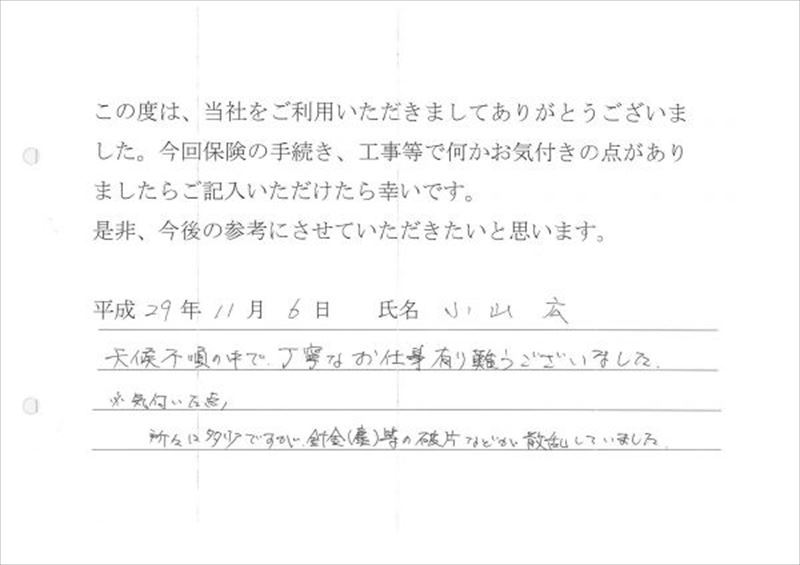 この度は、当社をご利用いただきましてありがとうございま
した。今回保険の手続き、工事等で何かお気付きの点があり
ましたらご記入いただけたら幸いです。
是非、今後の参考にさせていただきたいと思います。
平成 29 年 11 月 6 日 氏名 小山 広
天候不順の中で、丁寧なお仕事有り難うございました。
※気付いた点、
所々に ですが、針金( )等の破片などが散乱していました。